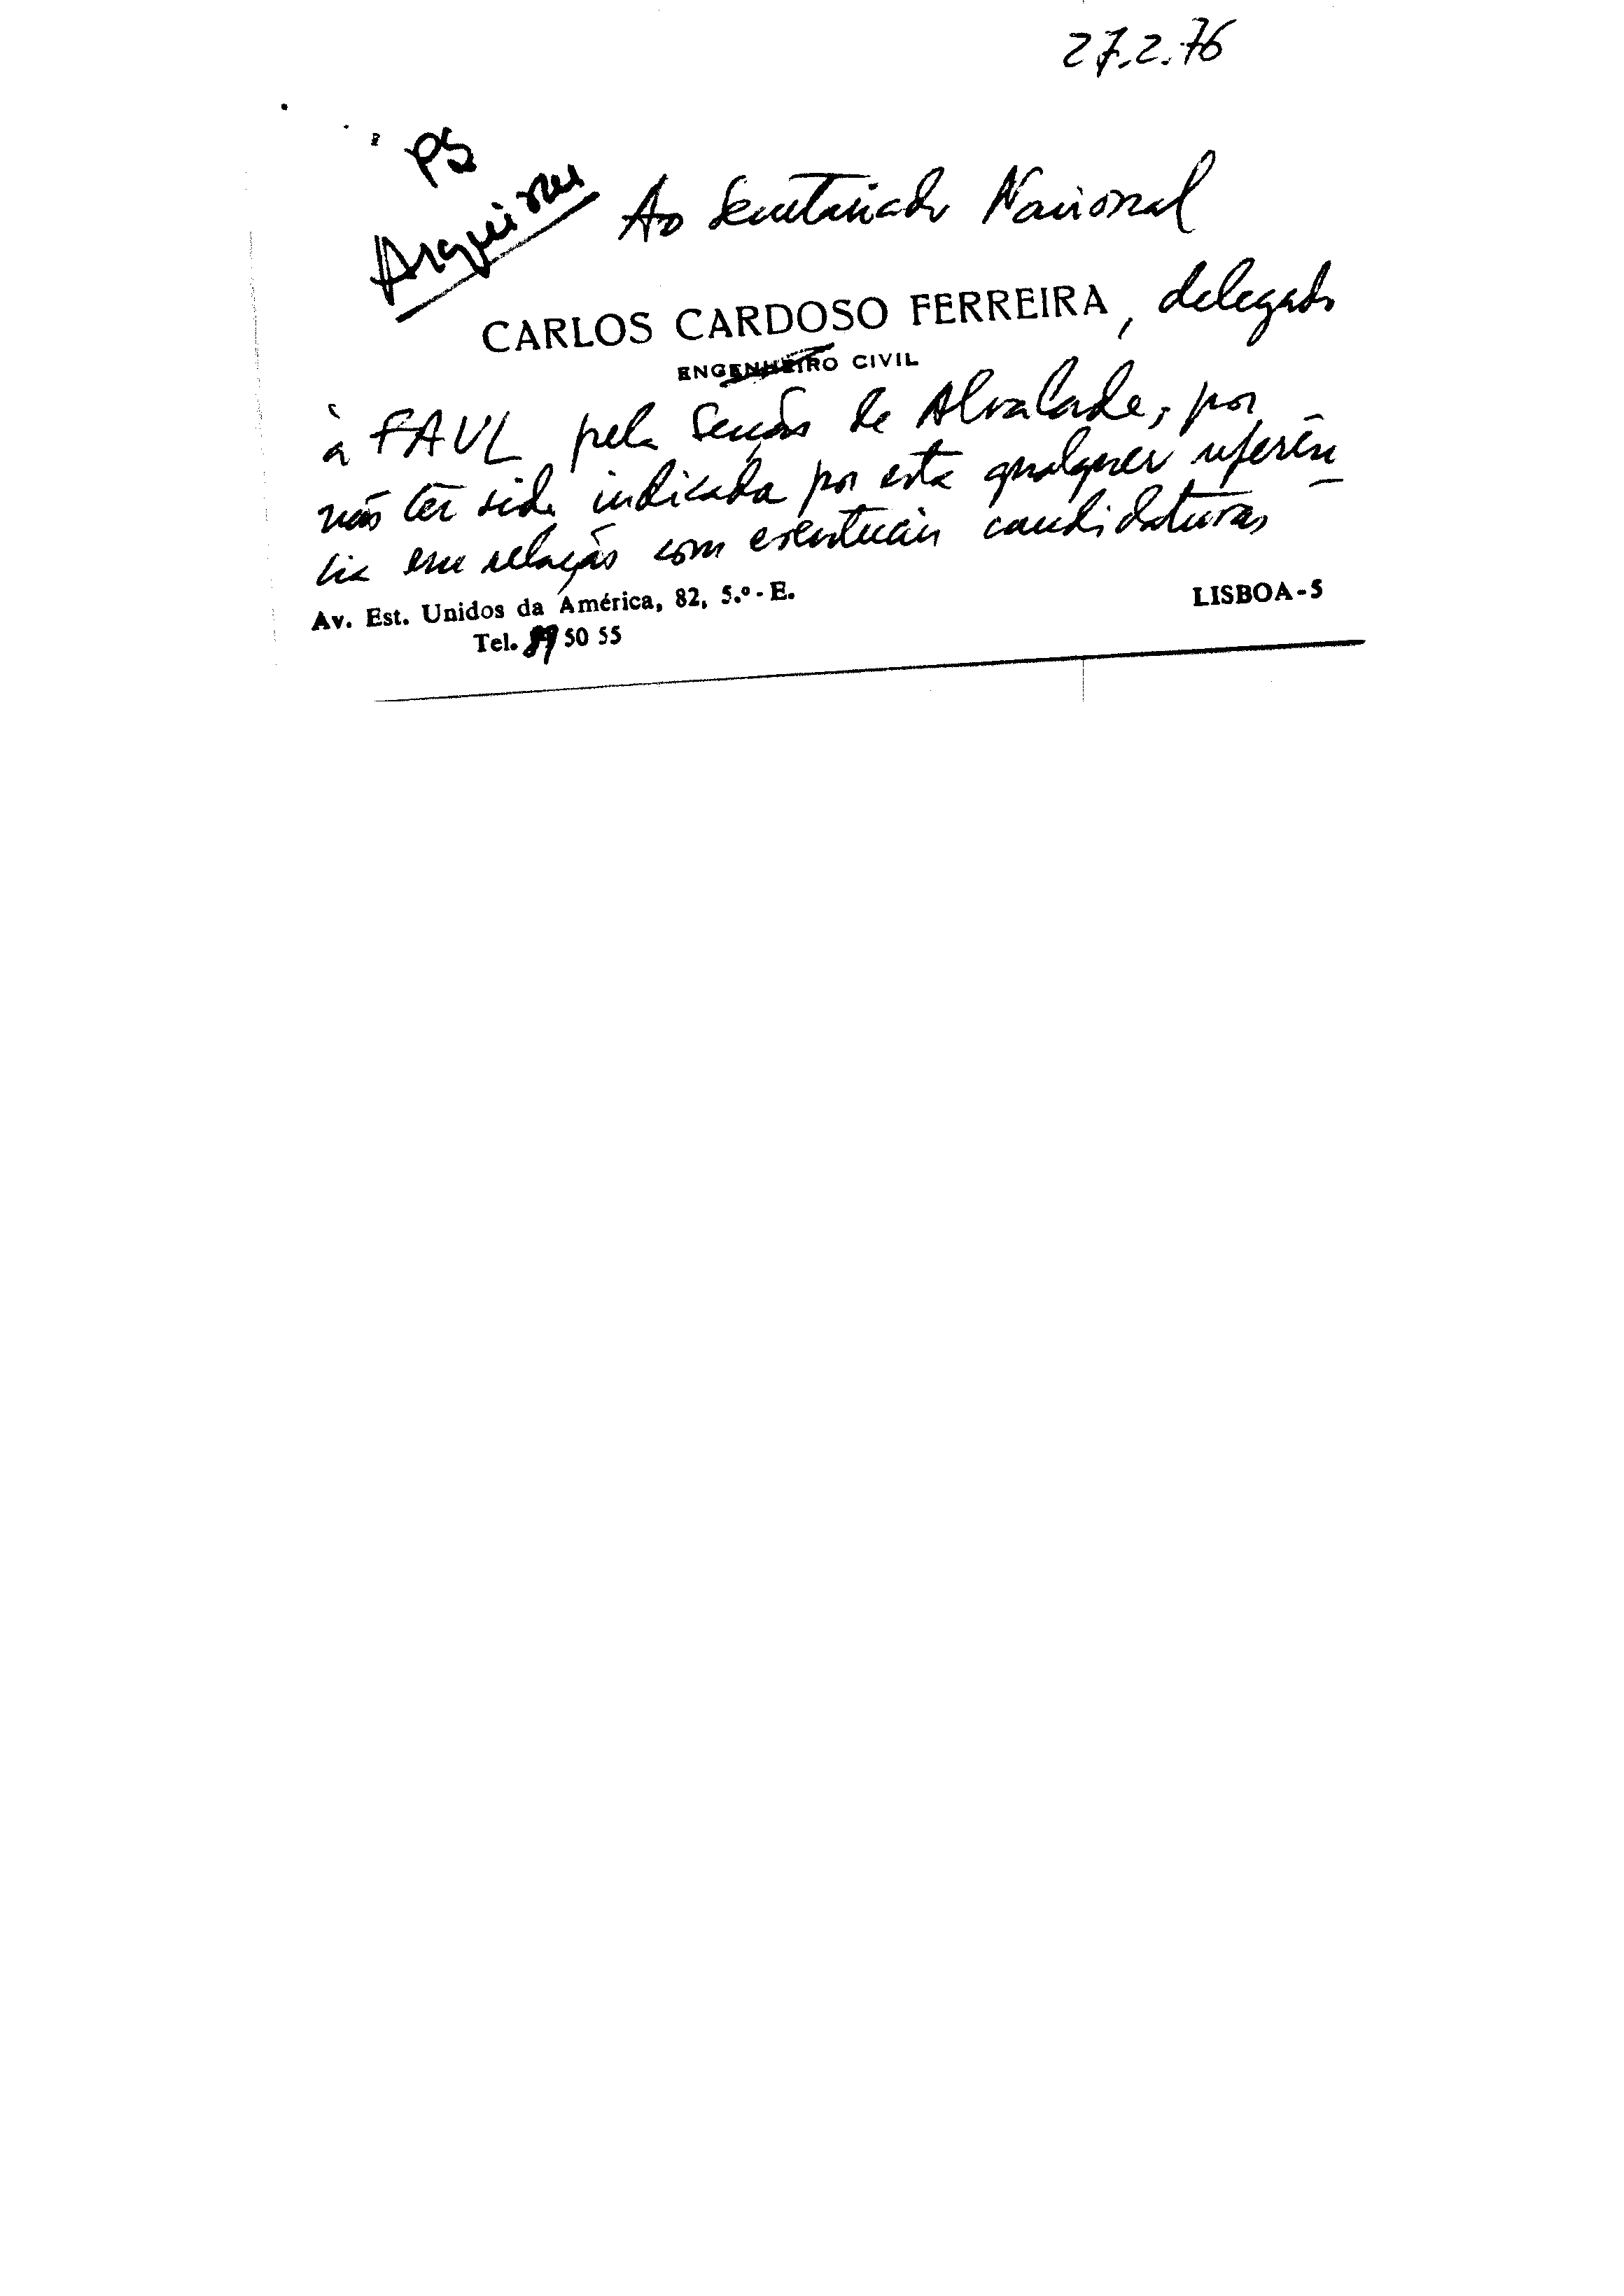 27.2.76
PS
Arquivar
Ao Secretariado Nacional
CARLOS CARDOSO FERREIRA, delegado
ENGENHEIRO CIVIL
à FAUL pela Secção de Alvalade, por
não ter sido indicada por esta qualquer referên
cia em relação com eventuais candidaturas
Av. Est. Unidos da América, 82, 5.º-E. LISBOA-5
Tel. 89 50 55